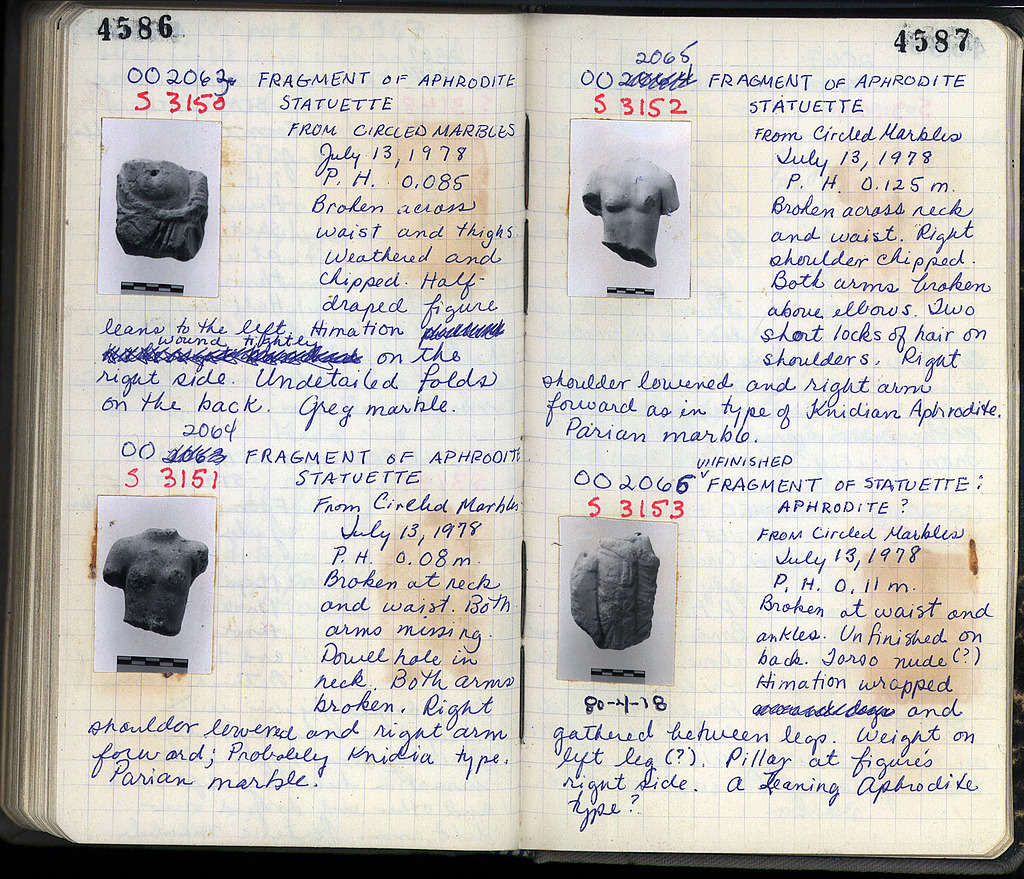 4586
OO 2063. FRAGMENT OF APHRODITE
S 3150 STATUETTE
FROM CIRCLED MARBLES
July 13, 1978
P. H. 0.085
Broken across
waist and thighs
Weathered and
chipped. Half-
draped figure
leans to the left. Himation
wound tightly
on the
right side. Undetailed folds
on the back. Grey marble.
2064
OO 2063 FRAGMENT OF APHRODITE
S 3151 STATUETTE
From Circled Marbles
July 13, 1978
P. H. 0.08 m.
Broken at neck
and waist. Both
arms missing.
Dowel hole in
neck. Both arms
broken. Right
shoulder lowered and right arm
forward; Probably Knidia type.
Parian marble.
4587
2065
OO FRAGMENT OF APHRODITE
S 3152 STATUETTE
From Circled Marbles
July 13, 1978
P. H. 0.125 m.
Broken across neck
and waist. Right
shoulder chipped.
Both arms broken
above elbows. Two
short locks of hair on
shoulders. Right
shoulder lowered and right arm
forward as in type of Knidian Aphrodite.
Parian marble.
UNFINISHED
OO 2066 FRAGMENT OF STATUETTE:
S 3153 APHRODITE?
FROM Circled Marbles
July 13, 1978
P. H. 0.11 m.
Broken at waist and
ankles. Unfinished on
back. Torso nude (?)
Himation wrapped
and
80-4-18
gathered between legs. Weight on
left leg (?). Pillar at figure's
right side. A Leaning Aphrodite
type?